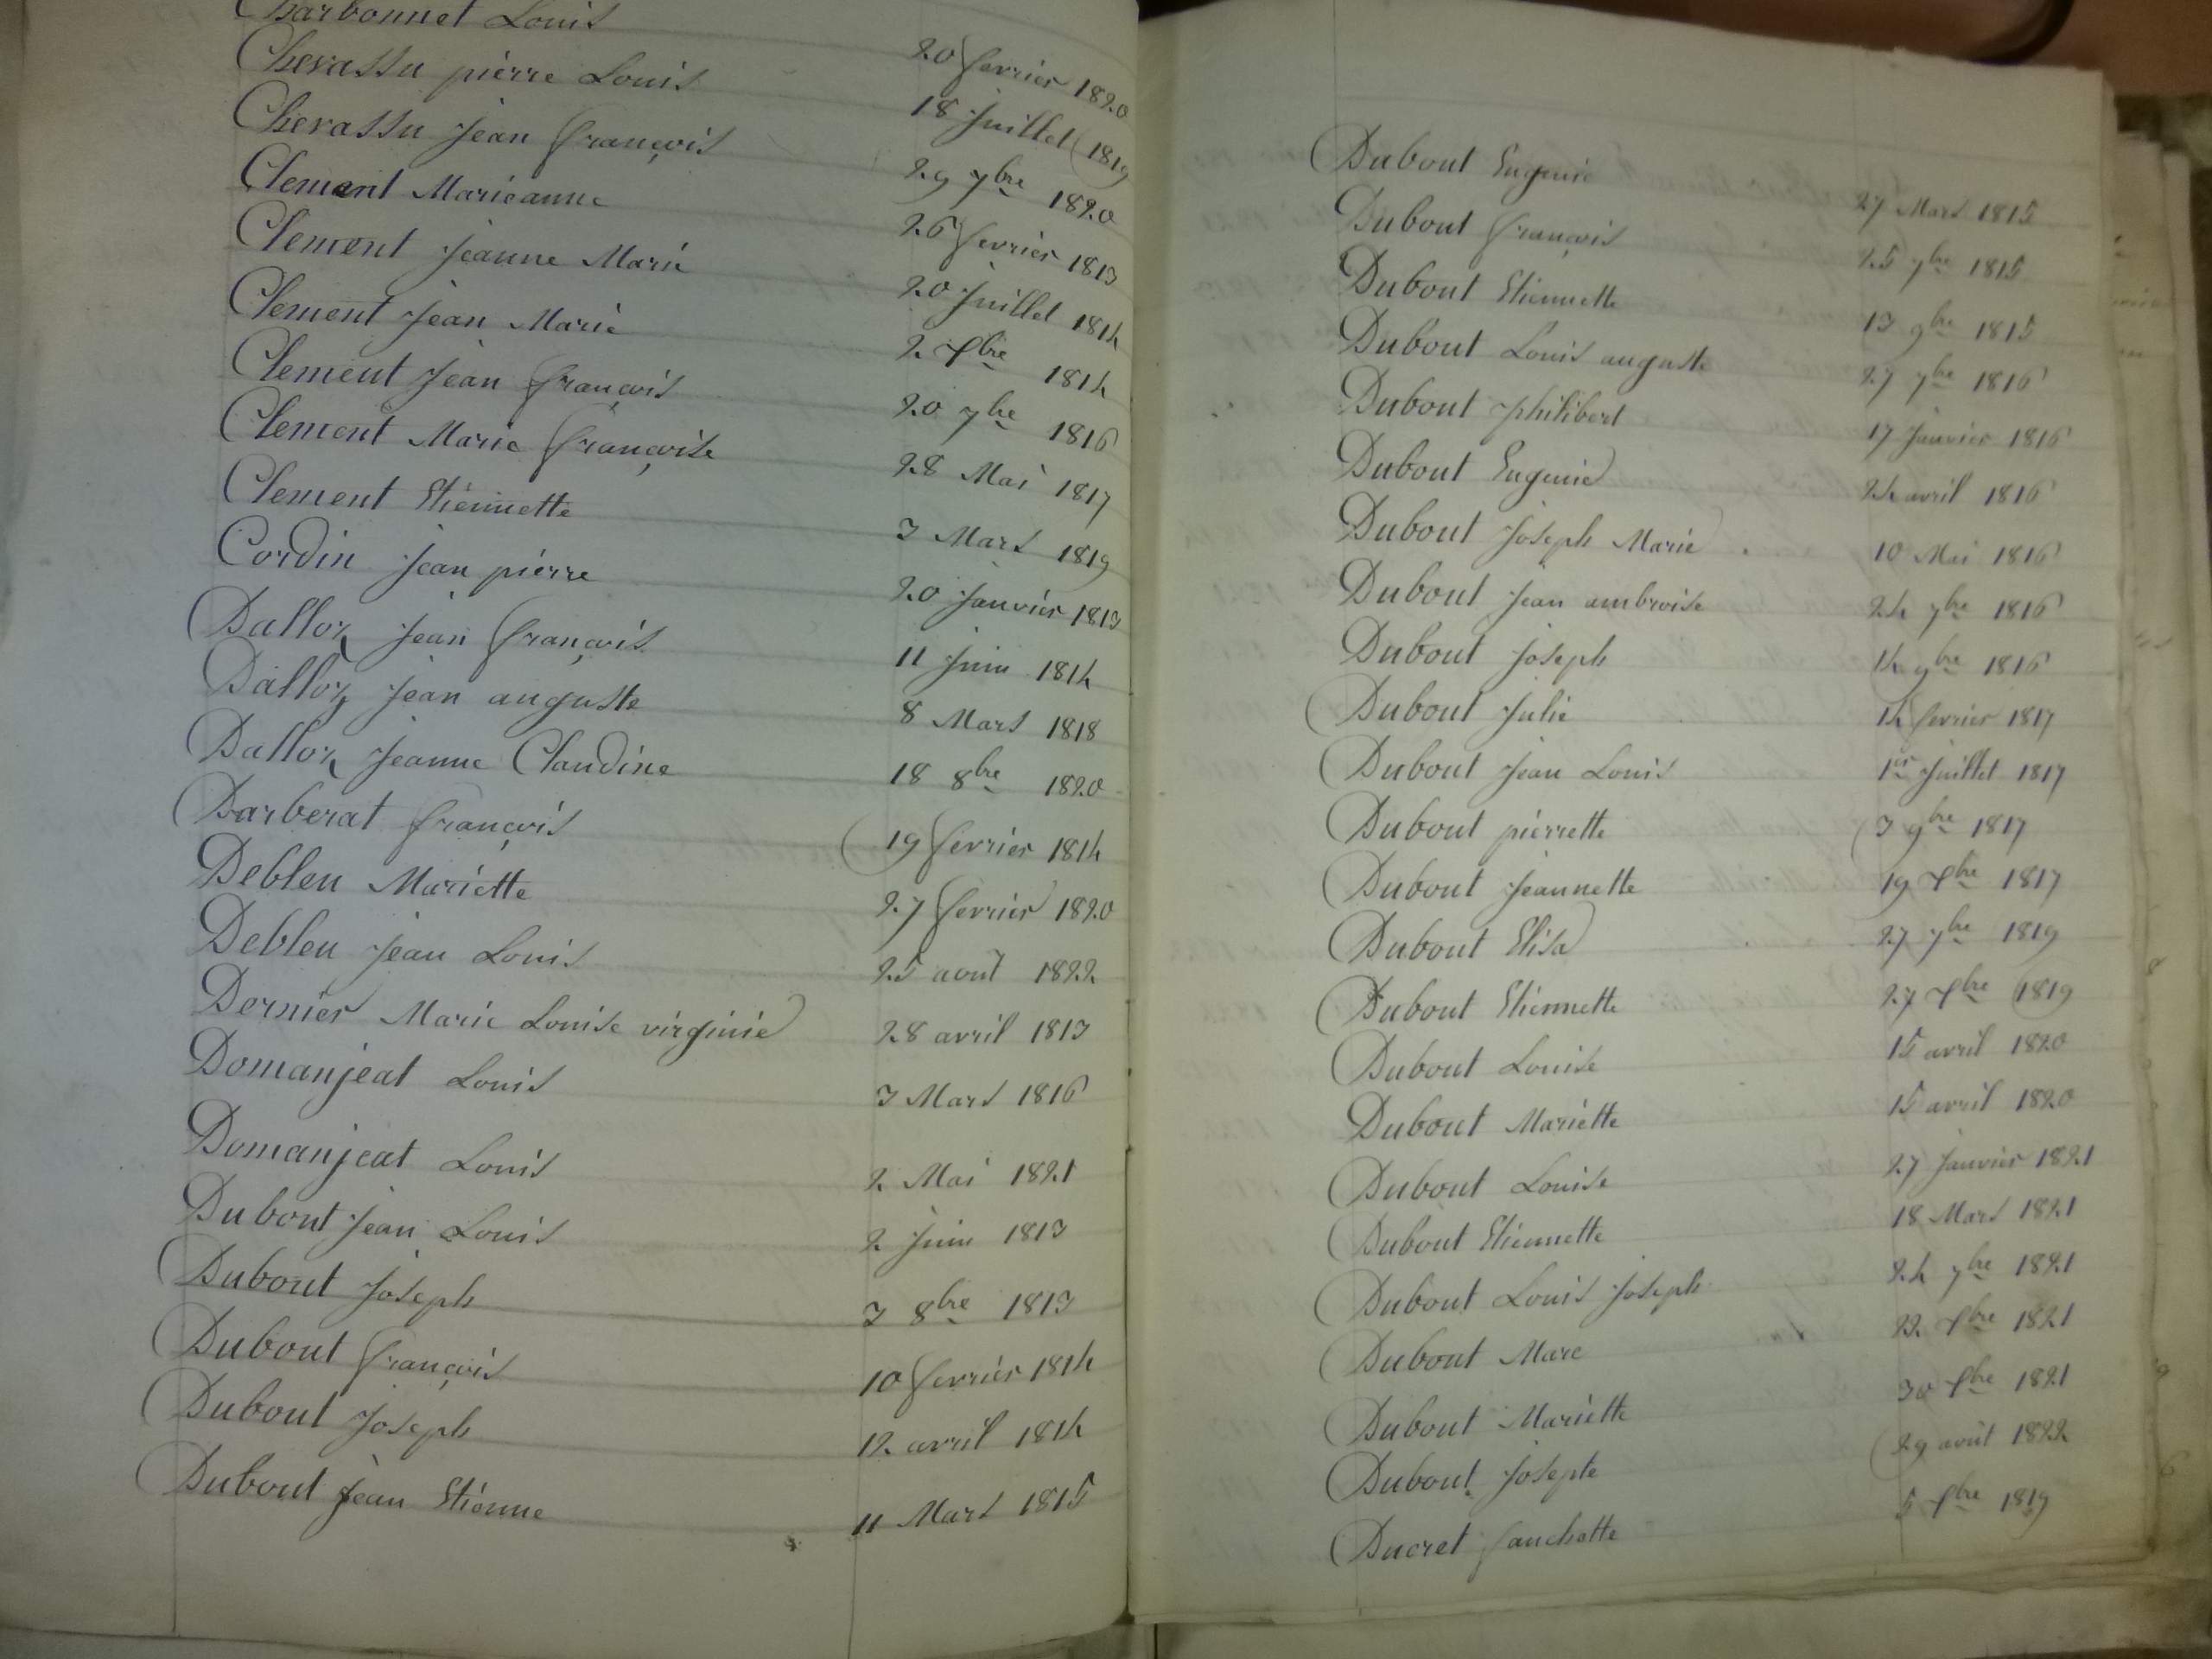 Charbonnet Louis 20 fevrier 1820
Chevassu pierre Louis 18 Juillet 1819
Chevassu Jean françois 29 7bre 1820
Clement Marieanne 26 fevrier 1813
Clement Jeanne Marie 20 Juillet 1814
Clement Jean Marie 2 Xbre 1814
Clement Jean françois 20 7bre 1816
Clement Marie françoise 28 Mai 1817
Clement Etiennette 3 Mars 1819
Cordin Jean pierre 20 Janvier 1813
Dalloz Jean françois 11 Juin 1814
Dalloz Jean auguste 8 Mars 1818
Dalloz Jeanne Claudine 18 8bre 1820
Darberat françois 19 fevrier 1814
Debleu Mariette 27 fevrier 1820
Debleu Jean Louis 25 aout 1822
Dernier Marie Louise virginie 28 avril 1813
Domanjeat Louis 3 Mars 1816
Domanjeat Louis 2 Mai 1821
Dubout Jean Louis 2 Juin 1813
Dubout Joseph 3 8bre 1813
Dubout françois 10 fevrier 1814
Dubout Joseph 12 avril 1814
Dubout Jean Etienne 11 Mars 1815
Dubout Eugenie 27 Mars 1815
Dubout françois 25 7bre 1815
Dubout Etiennette 13 9bre 1815
Dubout Louis auguste 27 7bre 1816
Dubout philibert 17 Janvier 1816
Dubout Eugenie 24 avril 1816
Dubout Joseph Marie 10 Mai 1816
Dubout Jean ambroise 24 7bre 1816
Dubout Joseph 14 9bre 1816
Dubout Julie 14 fevrier 1817
Dubout Jean Louis 1er Juillet 1817
Dubout pierrette 3 9bre 1817
Dubout Jeannette 19 Xbre 1817
Dubout Elisa 27 7bre 1819
Dubout Etiennette 27 Xbre 1819
Dubout Louise 15 avril 1820
Dubout Mariette 15 avril 1820
Dubout Louise 27 Janvier 1821
Dubout Etiennette 18 Mars 1821
Dubout Louis Joseph 24 7bre 1821
Dubout Marc 22 Xbre 1821
Dubout Mariette 30 Xbre 1821
Dubout Josepte 29 aout 1822
Ducret fanchette 5 Xbre 1819